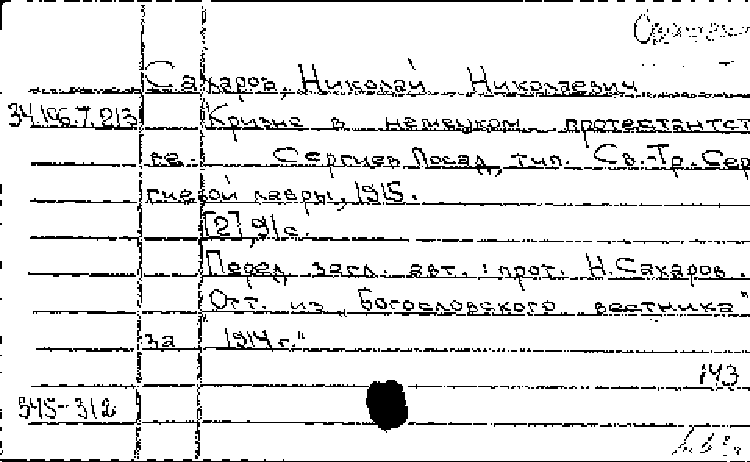 Сахаров, Николай Николаевич
34.106.7.213 Кризис в немецком протестантст
ве. Сергиев Посад, тип. Св.-Тр. Сер
гиевой лавры, 1915.
[2], 91с.
Перед загл. авт.: прот. Н. Сахаров.
"Отт. из "Богословского вестника"
за 1914 г."
143
345-312